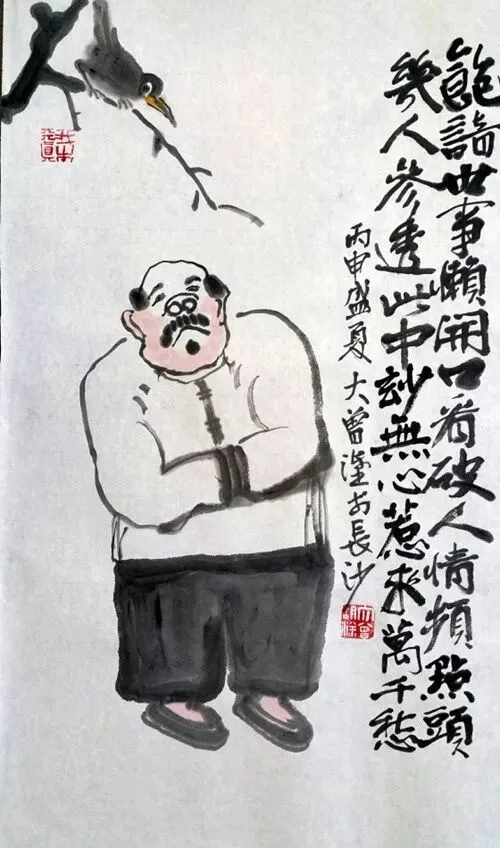 飽諳世事懶開口看破人情頻點頭
幾人參透此中玅無心惹来萬千愁
丙申盛夏 大曾塗於長沙